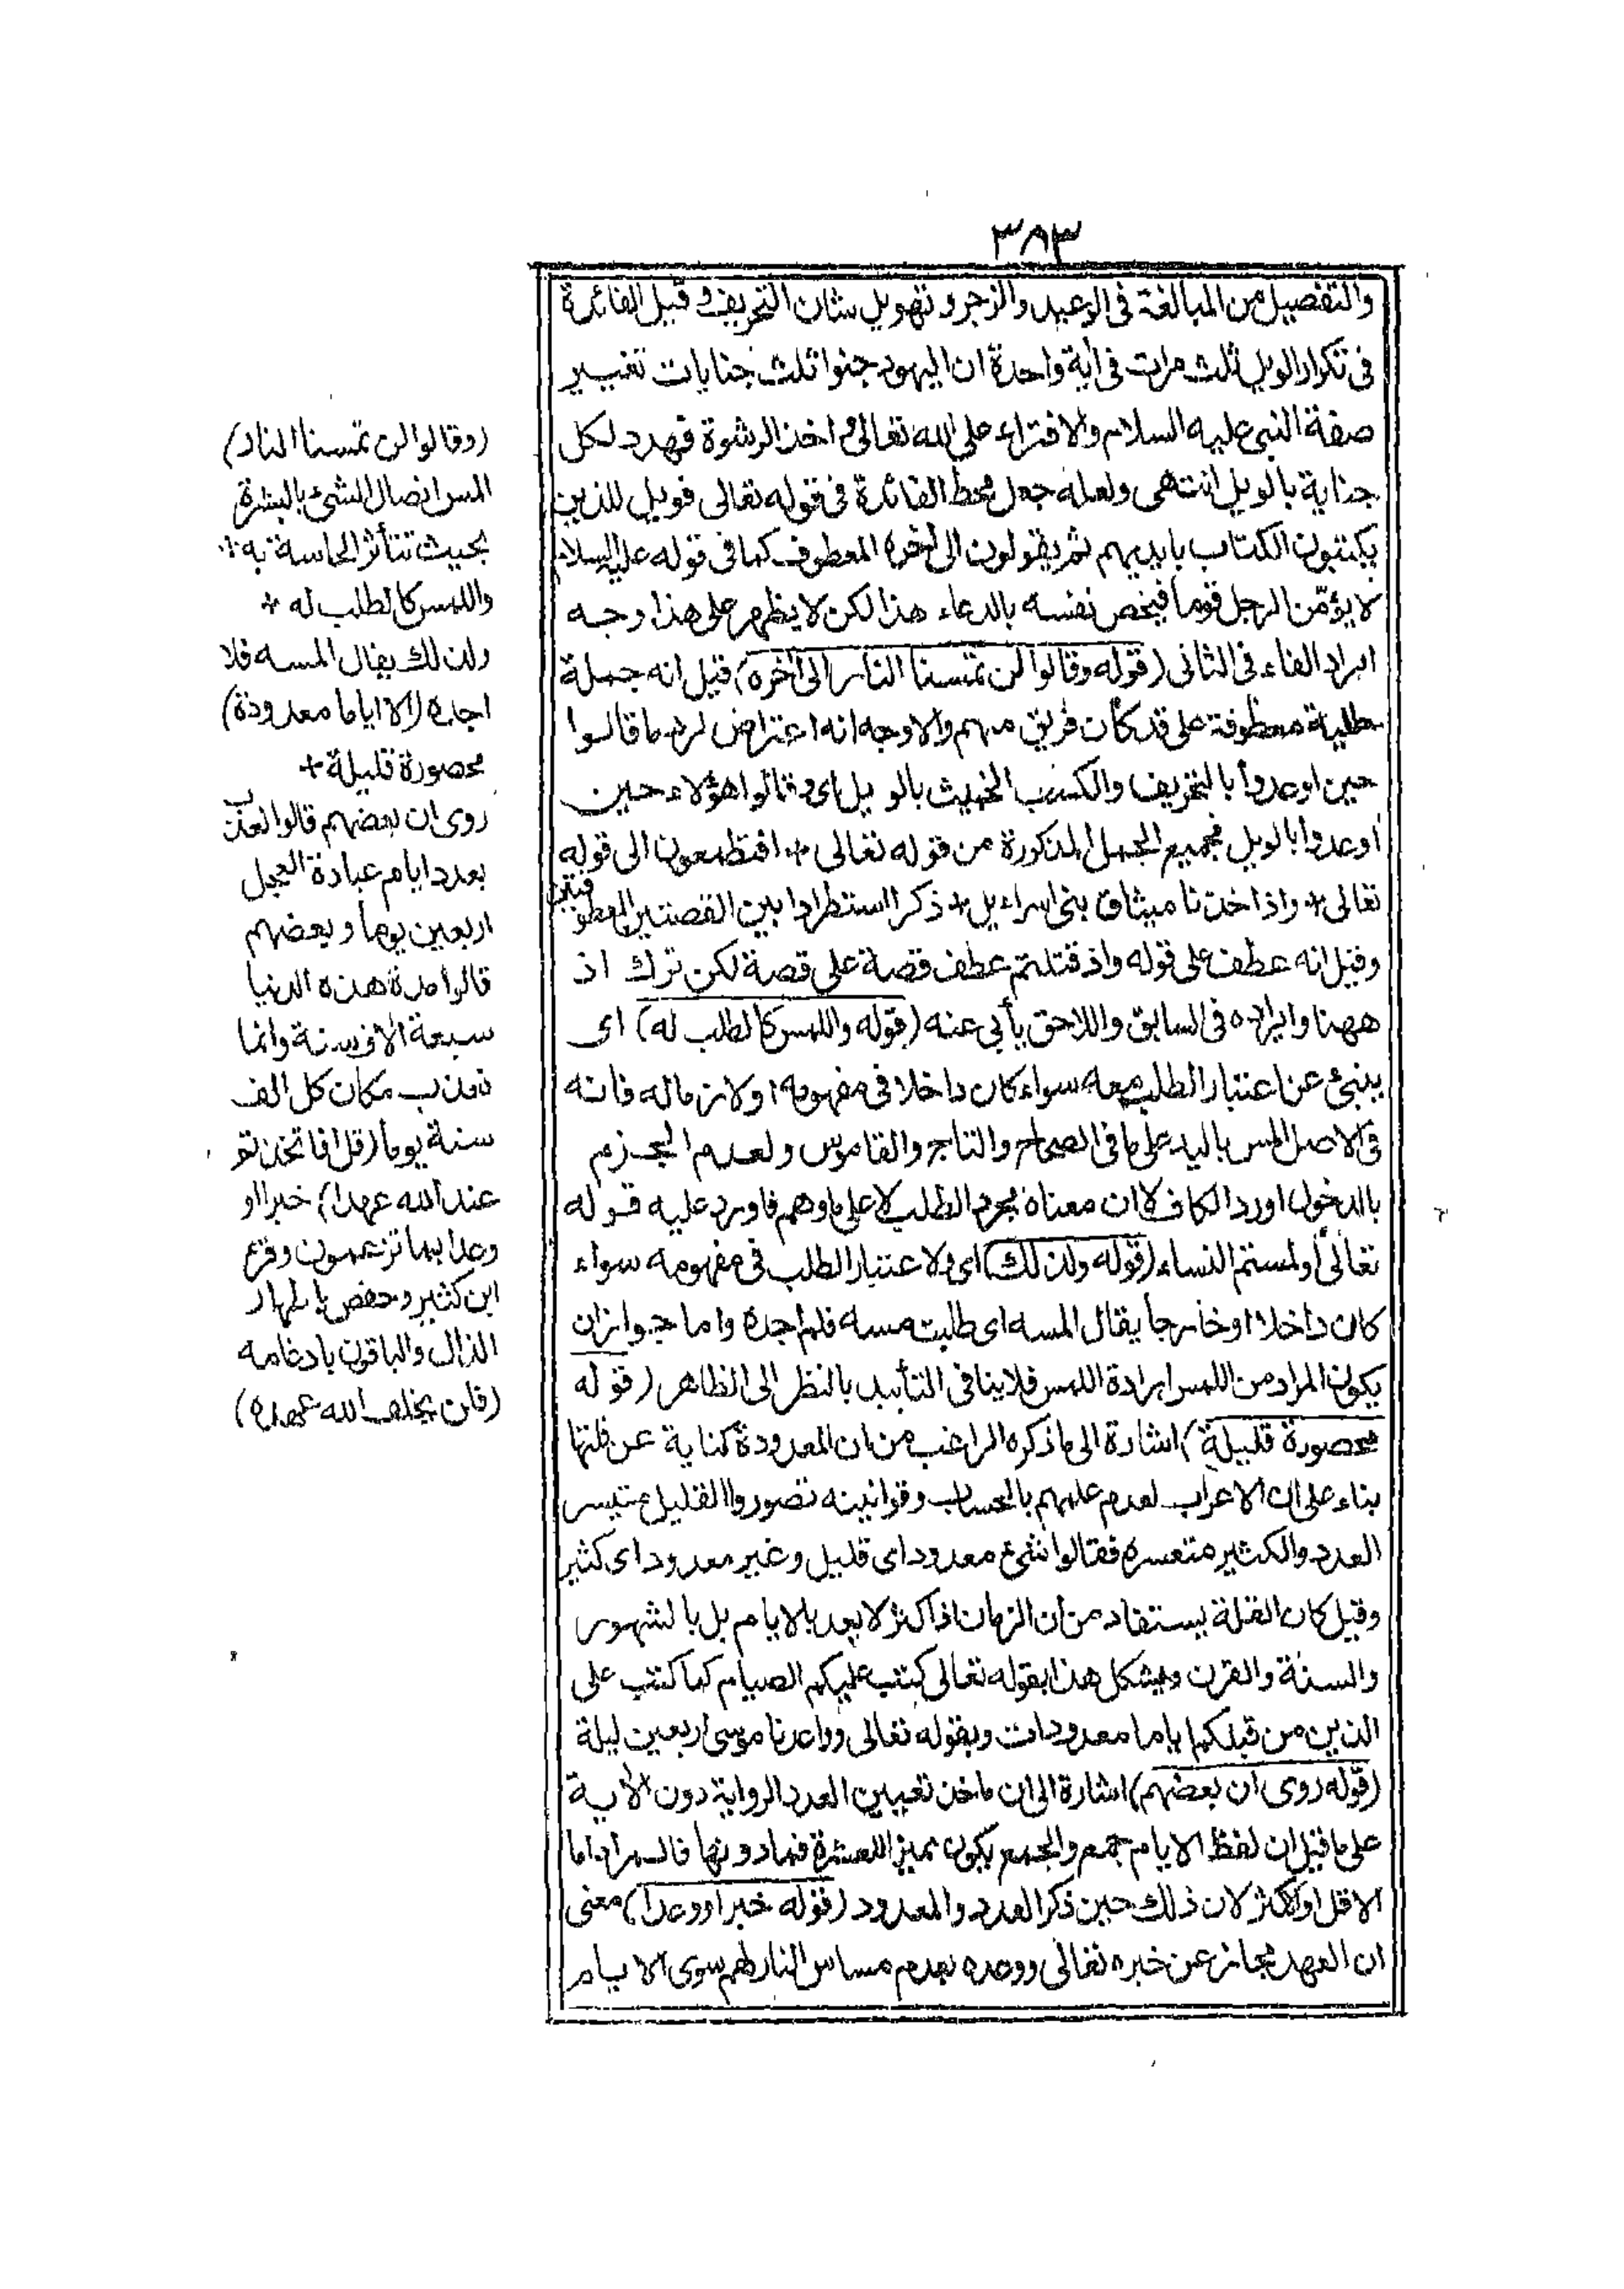 ٣٨٣
والتفصيل من المبالغة فى الوعيد والزجر وتهويل شان التحريف وقيل الفائدة
فى تكرار الويل ثلث مرات فى أية واحدة ان اليهود جنوا ثلث جنايات تغيير
صفة النبى عليه السلام والافتراء على الله تعالى واخذ الرشوة فهدد لكل
جناية بالويل انتهى ولعله جعل محط الفائدة فى قوله تعالى فويل للذين
يكتبون الكتاب بايديهم ثم يقولون الى أخره المعطوف كما فى قوله عليه السلام
لا يؤمّن الرجل قوما فيخص نفسه بالدعاء هذا لكن لا يظهر على هذا وجه
ايراد الفاء فى الثانى (قوله وقالوا لن تمسنا النار الى أخره) قيل انه جملة
حالية معطوفة على قد كان فريق منهم والاوجه انه اعتراض لرد ما قالوا
حين اوعدوا بالتحريف والكسب الخبيث بالويل اى وقالوا هؤلاء حين
اوعدوا بالويل فجميع الجمل المذكورة من قوله تعالى + افتطمعون الى قوله
تعالى + واذ اخذنا ميثاق بنى اسراءيل + ذكر استطرادا بين القصتين المعطوفتين
وقيل انه عطف على قوله واذ قتلتم عطف قصة على قصة لكن ترك اذ
ههنا وايراده فى السابق واللاحق يأبى عنه (قوله واللمس كالطلب له) اى
ينبئ عن اعتبار الطلب معه سواء كان داخلا فى مفهومه او لازما له فانه
فى الاصل المس باليد على ما فى الصحاح والتاج والقاموس ولعدم الجزم
بالدخول اورد الكاف لا ان معناه مجرد الطلب لا على ما وهم فاورد عليه قوله
تعالى أولمستم النساء (قوله ولذلك) اى ولاعتبار الطلب فى مفهومه سواء
كان داخلا او خارجا يقال المسه اى طلبت مسه فلم اجده واما جواز ان
يكون المراد من اللمس ارادة اللمس فلا ينافى التأييد بالنظر الى الظاهر (قوله
محصورة قليلة) اشارة الى ما ذكره الراغب من ان المعدودة كناية عن قلتها
بناء على ان الاعراب لعدم علمهم بالحساب وقوانينه تصوروا القليل متيسر
العدد والكثير متعسره فقالوا شئ معدود اى قليل وغير معدود اى كثير
وقيل كان القلة يستفاد من ان الزمان اذا كثر لا يعد بالايام بل بالشهور
والسنة والقرن ويشكل هذا بقوله تعالى كتب عليكم الصيام كما كتب على
الذين من قبلكم اياما معدودات وبقوله تعالى وواعدنا موسى اربعين ليلة
(قوله روى ان بعضهم) اشارة الى ان ماخذ تعيين العدد الرواية دون الأية
على ما قيل ان لفظ الايام جمع والجمع يكون تمييز اللعشرة فما دونها فالمراد اما
الاقل او الاكثر لان ذلك حين ذكر العدد والمعدود (قوله خبرا ووعدا) معنى
ان العهد مجاز عن خبره تعالى ووعده بعدم مساس النار لهم سوى الايام
(وقالوا لن تمسنا النار)
المس اتصال الشئ بالبشرة
بحيث تتأثر الحاسة به +
واللمس كالطلب له +
ولذلك يقال المسه فلا
اجده (الا اياما معدودة)
محصورة قليلة +
روى ان بعضهم قالوا نعذب
بعدد ايام عبادة العجل
اربعين يوما وبعضهم
قالوا مدة هذه الدنيا
سبعة الاف سنة وانما
نعذب مكان كل الف
سنة يوما (قل اتخذتم
عند الله عهدا) خبرا او
وعدا بما تزعمون وقرع
ابن كثير وحفص باظهار
الذال والباقون بادغامه
(فلن يخلف الله عهده)